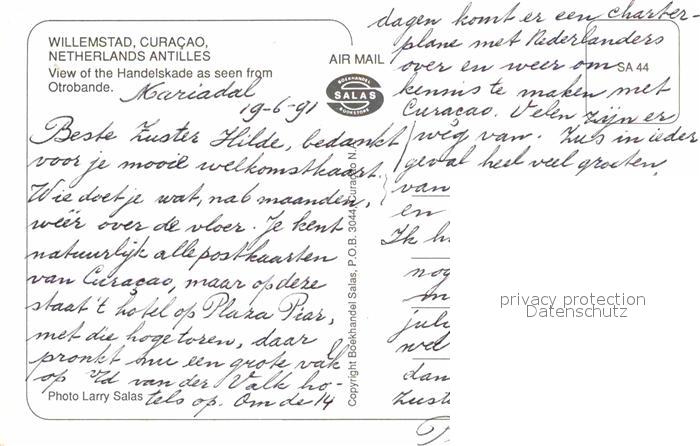 WILLEMSTAD, CURAÇAO,
NETHERLANDS ANTILLES
View of the Handelskade as seen from
Otrobande.
AIR MAIL
BOEKHANDEL
SALAS
SA 44
Mariadal
19-6-91
Beste Zuster Hilde, bedankt
voor je mooie welkomstkaart.
Wie doet je wat, na 6 maanden,
wéér over de vloer. Je kent
natuurlijk alle postkaarten
van Curaçao, maar op deze
staat 't hotel op Plaza Piar,
met die hoge toren, daar
pronkt nu een grote vak
op v/d van der Valk ho-
tels op. Om de 14
dagen komt er een charter-
plane met Nederlanders
over en weer om
kennis te maken met
Curaçao. Velen zijn er
weg van. Zus in ieder
geval heel veel groeten,
van
en
Ik h
nog
m
july
wel
dan
Zust
Photo Larry Salas
Copyright Boekhandel Salas, P.O.B. 3044, Curacao N.A.
privacy protection
Datenschutz